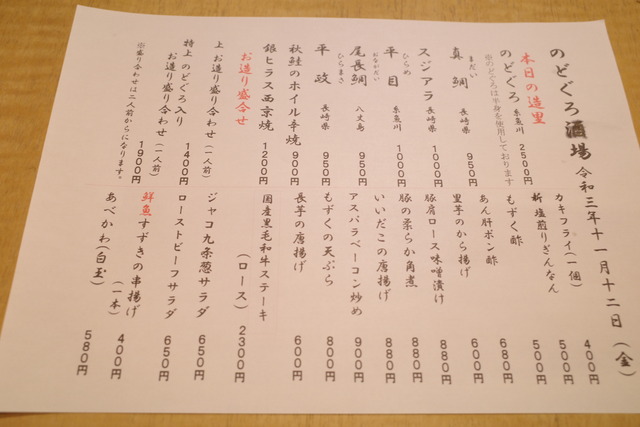 のどぐろ酒場 令和三年十一月十二日（金）
本日の造里
のどぐろ 糸魚川 2500円
※のどぐろは半身を使用しております
まだい
真鯛 長崎県 950円
スジアラ 長崎県 1000円
ひらめ
平目 糸魚川 1000円
おながだい
尾長鯛 八丈島 950円
ひらまさ
平政 長崎県 950円
秋鮭のホイル辛焼 900円
銀ヒラス西京焼 1200円
お造り盛合せ
上 お造り盛り合わせ（一人前） 1400円
特上 のどぐろ入り
お造り盛り合わせ（一人前） 1900円
※盛り合わせは二人前からになります。
カキフライ（一個） 400円
新 塩煎りぎんなん 500円
もずく酢 500円
あん肝ポン酢 680円
里芋のから揚げ 600円
豚肩ロース味噌漬け 880円
豚の柔らか角煮 880円
いいだこの唐揚げ 880円
アスパラベーコン炒め 900円
もずくの天ぷら 800円
長芋の唐揚げ 600円
国産黒毛和牛ステーキ
（ロース） 2300円
ジャコ九条葱サラダ 650円
ローストビーフサラダ 650円
鮮魚すずきの串揚げ
（一本） 400円
あべかわ（白玉） 580円